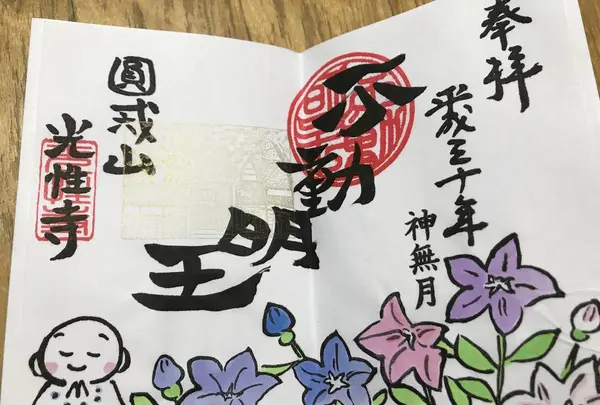 奉拝
平成三十年
神無月
不動明王
圓戒山
光性寺